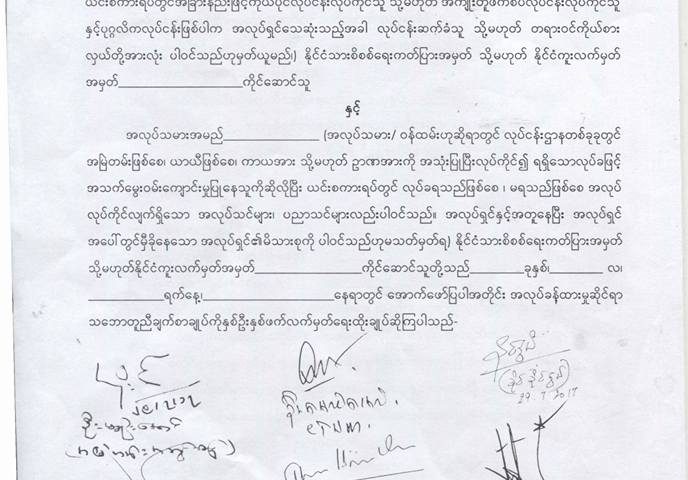 ယင်းစကားရပ်တွင်အခြားနည်းဖြင့်ကိုယ်ပိုင်လုပ်ငန်းလုပ်ကိုင်သူ သို့မဟုတ် အကျိုးတူဖက်စပ်လုပ်ငန်းလုပ်ကိုင်သူ
နှင့်ပုဂ္ဂလိကလုပ်ငန်းဖြစ်ပါက အလုပ်ရှင်သေဆုံးသည့်အခါ လုပ်ငန်းဆက်ခံသူ သို့မဟုတ် တရားဝင်ကိုယ်စား
လှယ်တို့အားလုံး ပါဝင်သည်ဟုမှတ်ယူမည်၊) နိုင်ငံသားစိစစ်ရေးကတ်ပြားအမှတ် သို့မဟုတ် နိုင်ငံကူးလက်မှတ်
အမှတ်____________________ကိုင်ဆောင်သူ
နှင့်
အလုပ်သမားအမည်_______________ (အလုပ်သမား/ ဝန်ထမ်းဟုဆိုရာတွင် လုပ်ငန်းဌာနတစ်ခုခုတွင်
အမြဲတမ်းဖြစ်စေ၊ ယာယီဖြစ်စေ၊ ကာယအား သို့မဟုတ် ဥာဏအားကို အသုံးပြုပြီးလုပ်ကိုင်၍ ရရှိသောလုပ်ခဖြင့်
အသက်မွေးဝမ်းကျောင်းမှုပြုနေသူကိုဆိုလိုပြီး ယင်းစကားရပ်တွင် လုပ်ခရသည်ဖြစ်စေ ၊ မရသည်ဖြစ်စေ အလုပ်
လုပ်ကိုင်လျက်ရှိသော အလုပ်သင်များ၊ ပညာသင်များလည်းပါဝင်သည်။ အလုပ်ရှင်နှင့်အတူနေပြီး အလုပ်ရှင်
အပေါ်တွင်မှီခိုနေသော အလုပ်ရှင်၏မိသားစုကို ပါဝင်သည်ဟုမသတ်မှတ်ရ) နိုင်ငံသားစိစစ်ရေးကတ်ပြားအမှတ်
သို့မဟုတ်နိုင်ငံကူးလက်မှတ်အမှတ်_________________ကိုင်ဆောင်သူတို့သည်________ခုနှစ်၊________ လ၊
____________ရက်နေ့၊____________________နေရာတွင် အောက်ဖော်ပြပါအတိုင်း အလုပ်ခန့်ထားမှုဆိုင်ရာ
သဘောတူညီချက်စာချုပ်ကိုနှစ်ဦးနှစ်ဖက်လက်မှတ်ရေးထိုးချုပ်ဆိုကြပါသည်-
29.7.2017